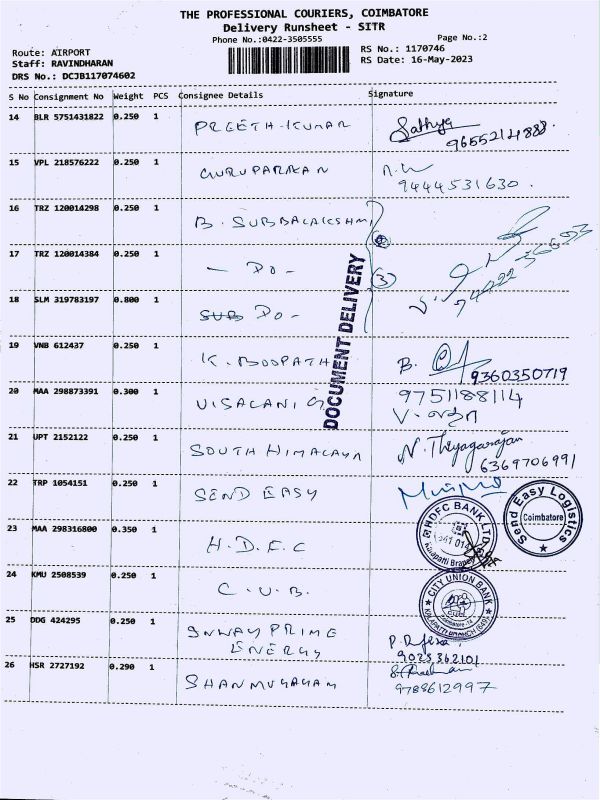 THE PROFESSIONAL COURIERS, COIMBATORE
Delivery Runsheet - SITR
Phone No.:0422-3505555
Page No.:2
Route: AIRPORT
RS No.: 1170746
Staff: RAVINDHARAN
RS Date: 16-May-2023
DRS No.: DCJB117074602
S No Consignment No Weight PCS Consignee Details Signature
14 BLR 5751431822 0.250 1 PREETH-KUMAR Sathya
15 VPL 218576222 0.250 1 GURUPARRAN
9444531630.
16 TRZ 120014298 0.250 1 B. SUBBALAKSHMI
17 TRZ 120014384 0.250 1 - DO - 3
18 SLM 319783197 0.800 1 DO -
DOCUMENT DELIVERY
19 VNB 612437 0.250 1 K. BOOPATH B.
9360350719
20 MAA 298873391 0.300 1 VISALANI G 9751188114
21 UPT 2152122 0.250 1 SOUTH HIMALAYA N. Thiyagarajan
6369706991
22 TRP 1054151 0.250 1 SEND EASY
Send Easy Logistics
Coimbatore
23 MAA 298316800 0.350 1 H.D.F.C
HDFC BANK LTD
Kalapatti Branch
24 KMU 2508539 0.250 1 C.U.B.
CITY UNION BANK
KALAPATTI BRANCH
25 DDG 424295 0.250 1 INWAY PRIME
ENERGY
9023362101
26 HSR 2727192 0.290 1 SHANMUGAM
9788612997